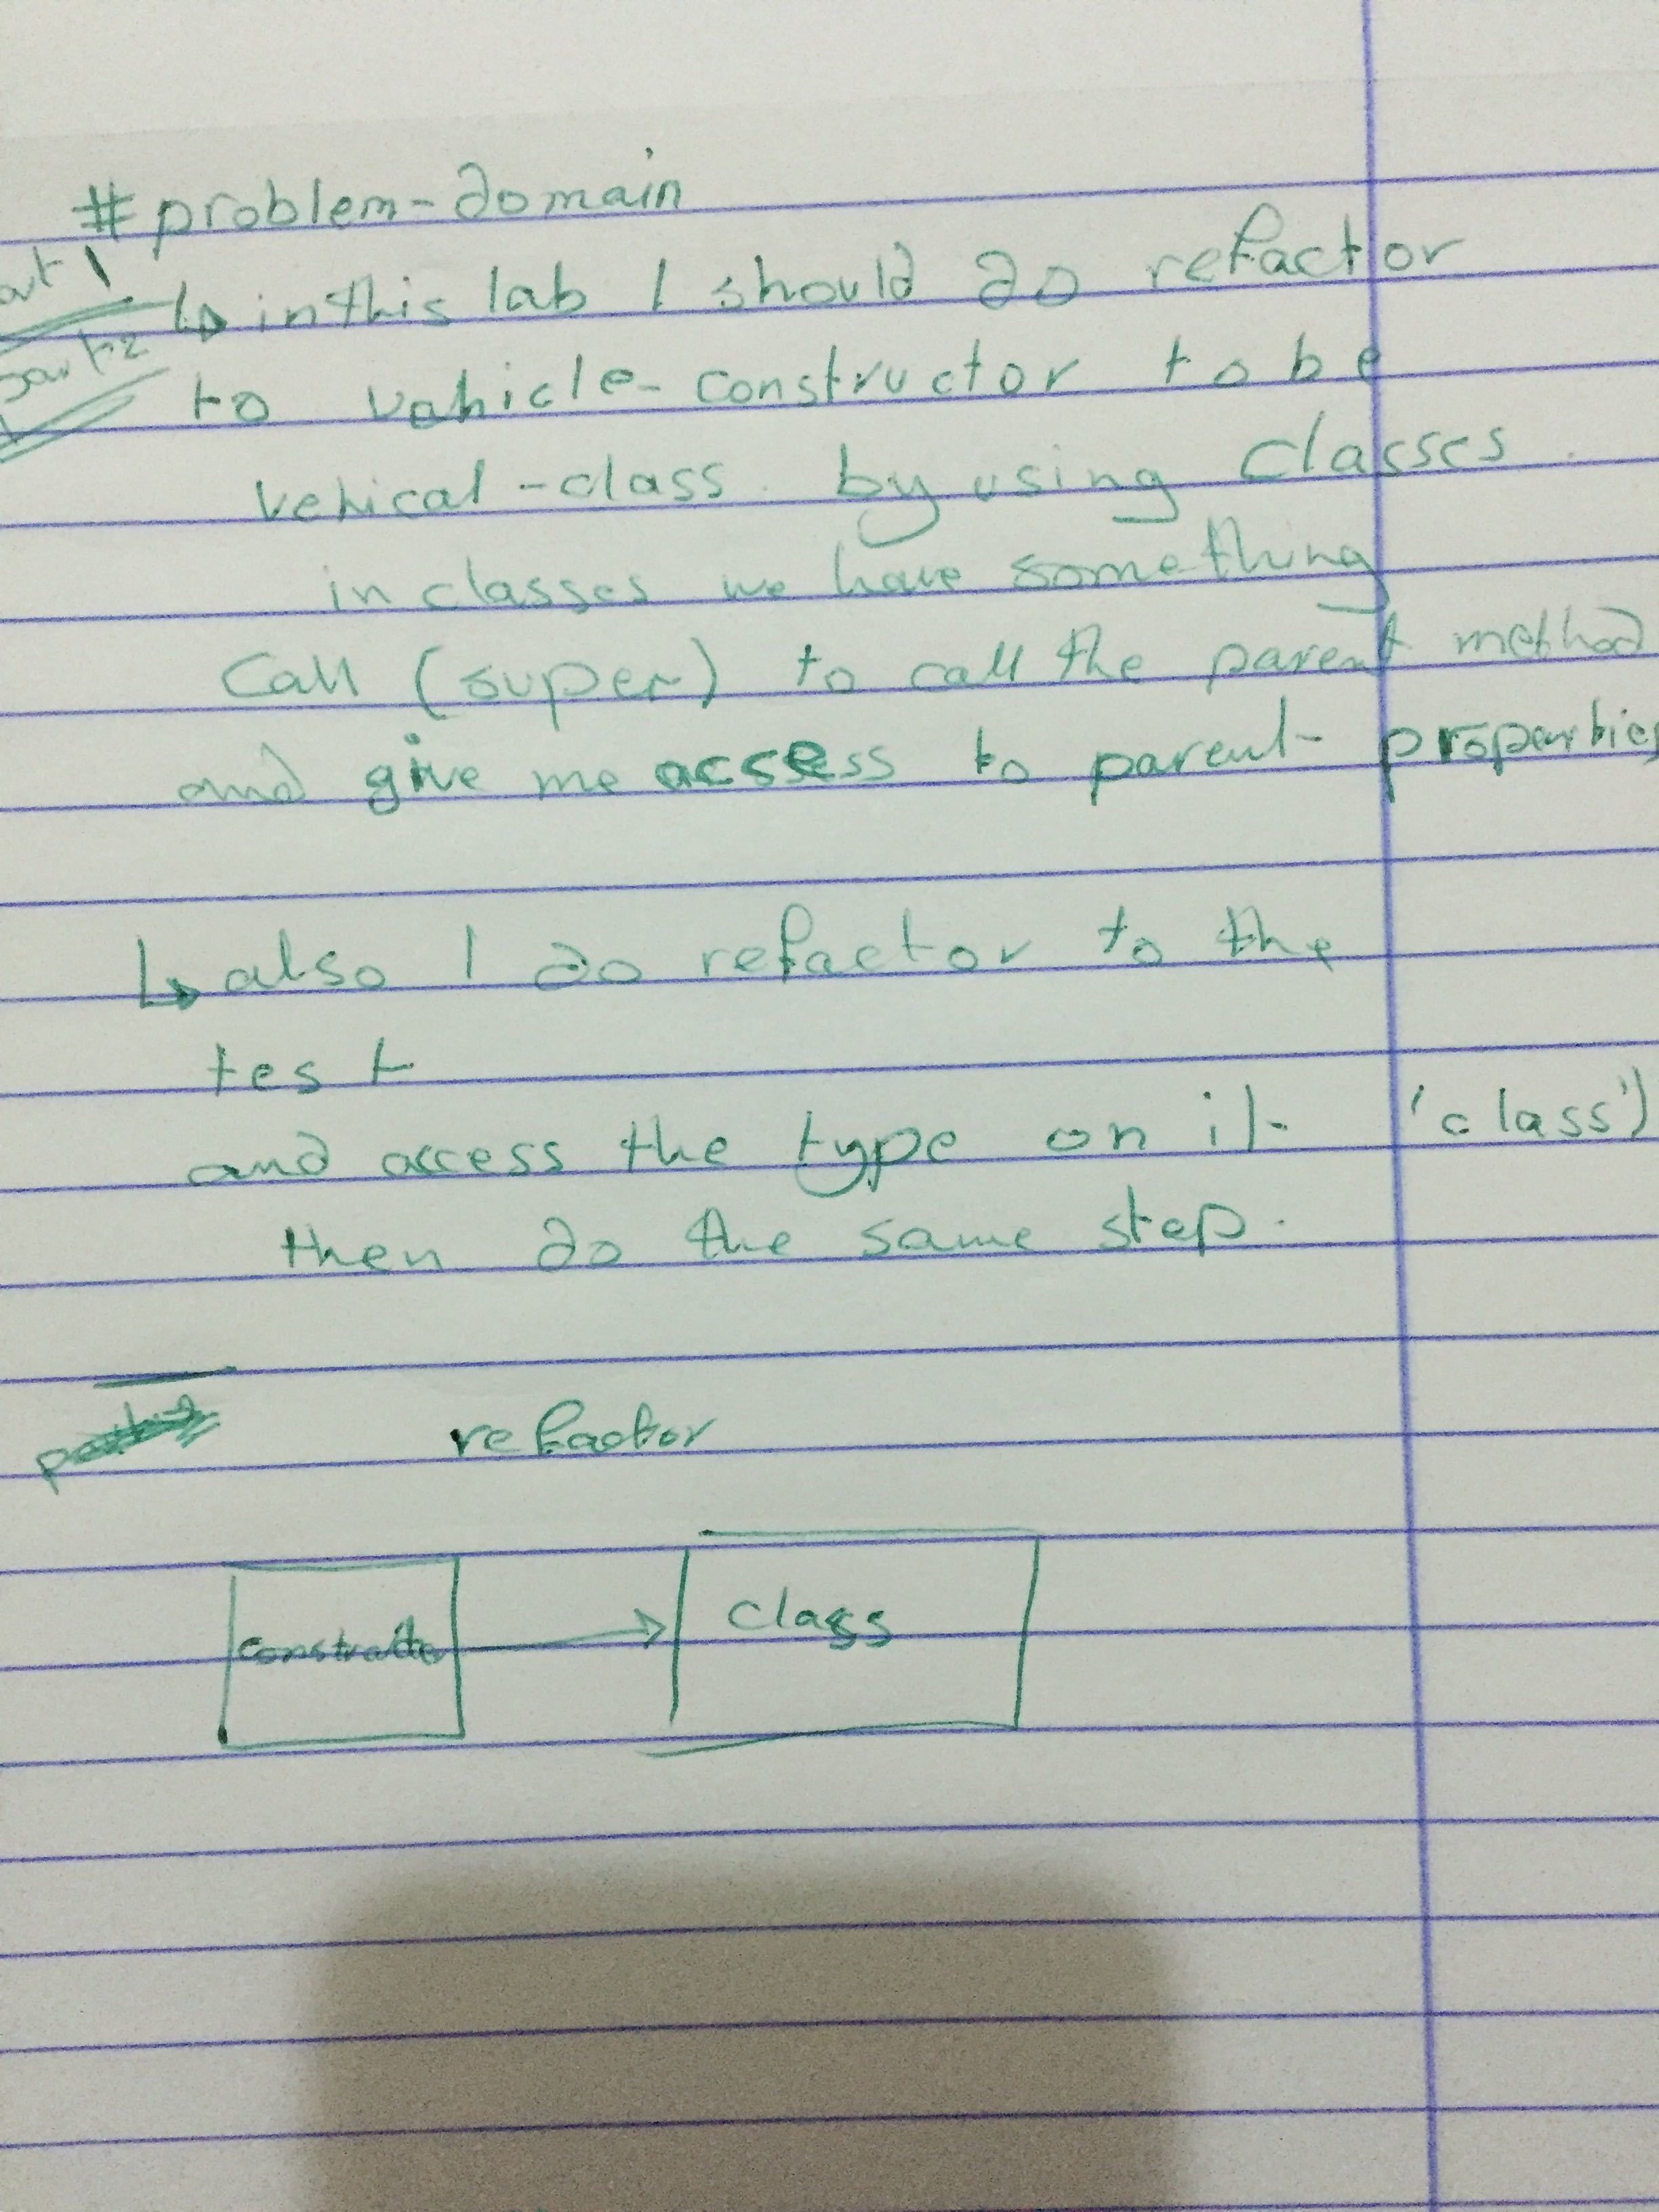 # problem-domain
part 1
↳ in this lab I should do refactor
part 2
to vehicle-constructor to be
vehical-class. by using classes.
in classes we have something
Call (super) to call the parent method
and give me access to parent properties
↳ also I do refactor to the
test
and access the type on it 'class')
then do the same step.
refactor
class